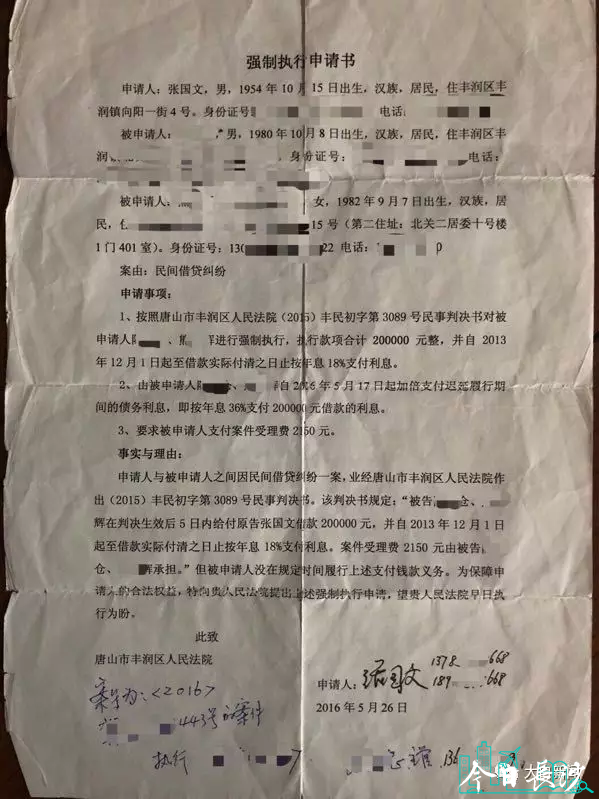 强制执行申请书
申请人：张国文，男，1954年10月15日出生，汉族，居民，住丰润区丰
润镇向阳一街4号。身份证号 电话
被申请人： 男，1980年10月8日出生，汉族，居民，住丰润区丰
润 身份证号： 电话：
被申请人： 女，1982年9月7日出生，汉族，居
民， 15号（第二住址：北关二居委十号楼
1门401室）。身份证号：13 22 电话：
案由：民间借贷纠纷
申请事项：
1、按照唐山市丰润区人民法院（2015）丰民初字第3089号民事判决书对被
申请人 、 进行强制执行，执行款项合计200000元整，并自2013
年12月1日起至借款实际付清之日止按年息18%支付利息。
2、由被申请人 、 自2016年5月17日起加倍支付迟延履行期
间的债务利息，即按年息36%支付200000元借款的利息。
3、要求被申请人支付案件受理费2150元。
事实与理由：
申请人与被申请人之间因民间借贷纠纷一案，业经唐山市丰润区人民法院作
出（2015）丰民初字第3089号民事判决书。该判决书规定：“被告 仓、
辉在判决生效后5日内给付原告张国文借款200000元，并自2013年12月1日
起至借款实际付清之日止按年息18%支付利息。案件受理费2150元由被告
仓、 辉承担。”但被申请人没在规定时间履行上述支付钱款义务。为保障申
请人的合法权益，特向贵人民法院提出上述强制执行申请，望贵人民法院早日执
行为盼。
此致
唐山市丰润区人民法院
申请人：张国文 1378 668
189 668
2016年5月26日
案号为：<2016>
443号的案件
执行
136
今日长沙